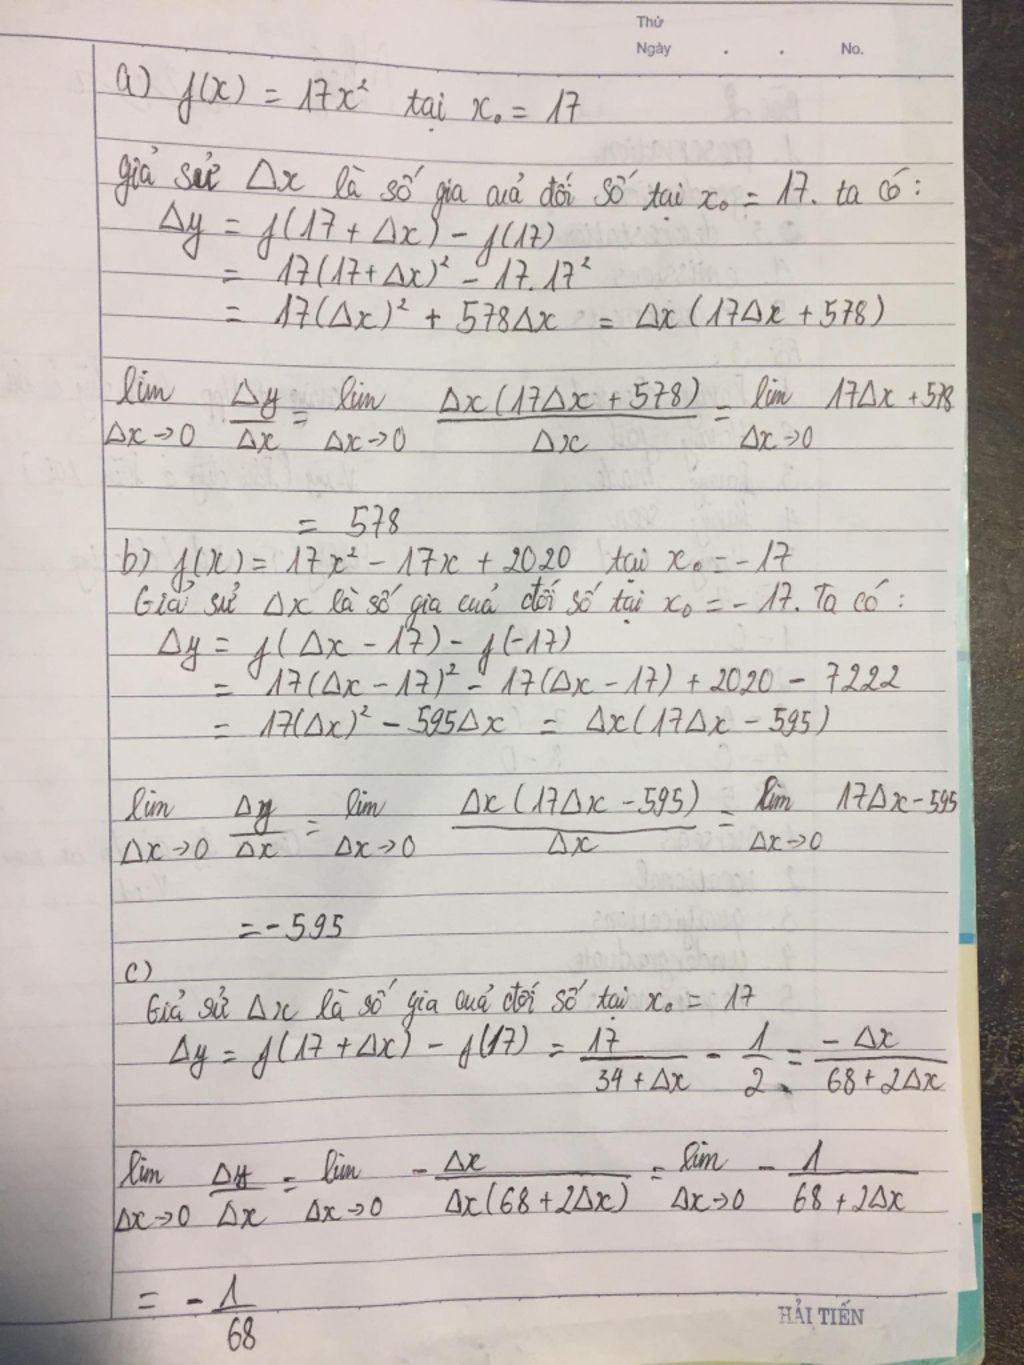 Thứ
Ngày . . No.
a) f(x) = 17x² tại x₀ = 17
giả sử Δx là số gia quả đối số tại x₀ = 17. ta có:
Δy = f(17 + Δx) - f(17)
= 17(17+Δx)² - 17.17²
= 17(Δx)² + 578Δx = Δx(17Δx + 578)
lim Δx→0 Δy/Δx = lim Δx→0 Δx(17Δx + 578)/Δx = lim Δx→0 17Δx + 578
= 578
b) f(x) = 17x² - 17x + 2020 tại x₀ = -17
Giả sử Δx là số gia cuả đối số tại x₀ = - 17. Ta có:
Δy = f(Δx - 17) - f(-17)
= 17(Δx - 17)² - 17(Δx - 17) + 2020 - 7222
= 17(Δx)² - 595Δx = Δx(17Δx - 595)
lim Δx→0 Δy/Δx = lim Δx→0 Δx(17Δx - 595)/Δx = lim Δx→0 17Δx - 595
= - 595
c)
Giả sử Δx là số gia quả đối số tại x₀ = 17
Δy = f(17 + Δx) - f(17) = 17/(34 + Δx) - 1/2 = -Δx/(68 + 2Δx)
lim Δx→0 Δy/Δx = lim Δx→0 - Δx/(Δx(68 + 2Δx)) = lim Δx→0 - 1/(68 + 2Δx)
= - 1/68
HẢI TIẾN